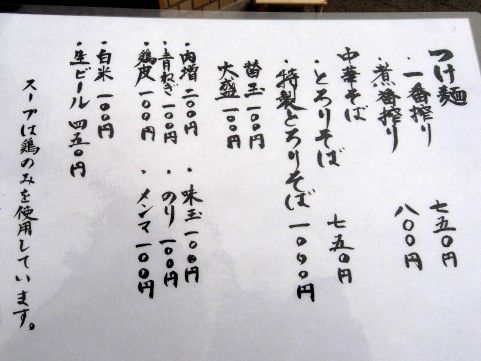 つけ麺
・一番搾り 七五〇円
・煮番搾り 八〇〇円
中華そば
・とろりそば 七五〇円
・特製とろりそば 一〇〇〇円
替玉 一〇〇円
大盛 一〇〇円
・肉増 二〇〇円 ・味玉 一〇〇円
・青ねぎ 一〇〇円 ・のり 一〇〇円
・鶏皮 一〇〇円 ・メンマ 一〇〇円
・白米 一〇〇円
・生ビール 四五〇円
スープは鶏のみを使用しています。